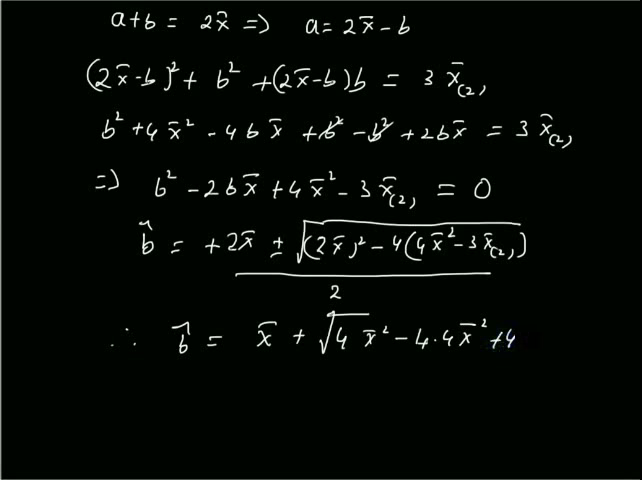 a+b = 2x̄ => a = 2x̄-b
(2x̄-b)² + b² + (2x̄-b)b = 3 x̄₍₂₎
b² + 4x̄² - 4bx̄ + b² - b² + 2bx̄ = 3 x̄₍₂₎
=> b² - 2bx̄ + 4x̄² - 3x̄₍₂₎ = 0
b̂ = +2x̄ ± √((2x̄)² - 4(4x̄² - 3x̄₍₂₎)) / 2
∴ b̂ = x̄ + √(4 x̄² - 4·4x̄² + 4